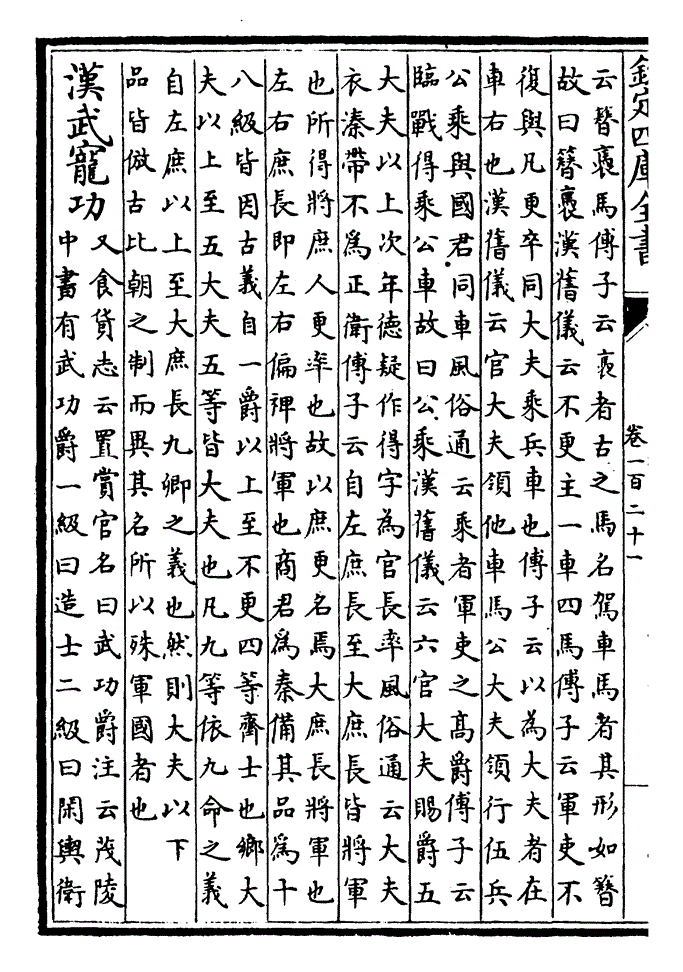 欽定四庫全書
卷一百二十一
云簪褭馬傅子云褭者古之馬名駕車馬者其形如簪
故曰簪褭漢舊儀云不更主一車四馬傅子云軍吏不
復與凡更卒同大夫乘兵車也傅子云以為大夫者在
車右也漢舊儀云官大夫領他車馬公大夫領行伍兵
公乘與國君同車風俗通云乘者軍吏之高爵傅子云
臨戰得乘公車故曰公乘漢舊儀云六官大夫賜爵五
大夫以上次年德疑作得字為官長率風俗通云大夫
衣溱帶不為正衛傅子云自左庶長至大庶長皆將軍
也所得將庶人更率也故以庶更名焉大庶長將軍也
左右庶長即左右偏裨將軍也商君為秦備其品為十
八級皆因古義自一爵以上至不更四等齊士也鄉大
夫以上至五大夫五等皆大夫也凡九等依九命之義
自左庶以上至大庶長九卿之義也然則大夫以下
品皆倣古比朝之制而異其名所以殊軍國者也
漢武寵功
又食貨志云置賞官名曰武功爵注云茂陵
中書有武功爵一級曰造士二級曰閑輿衛